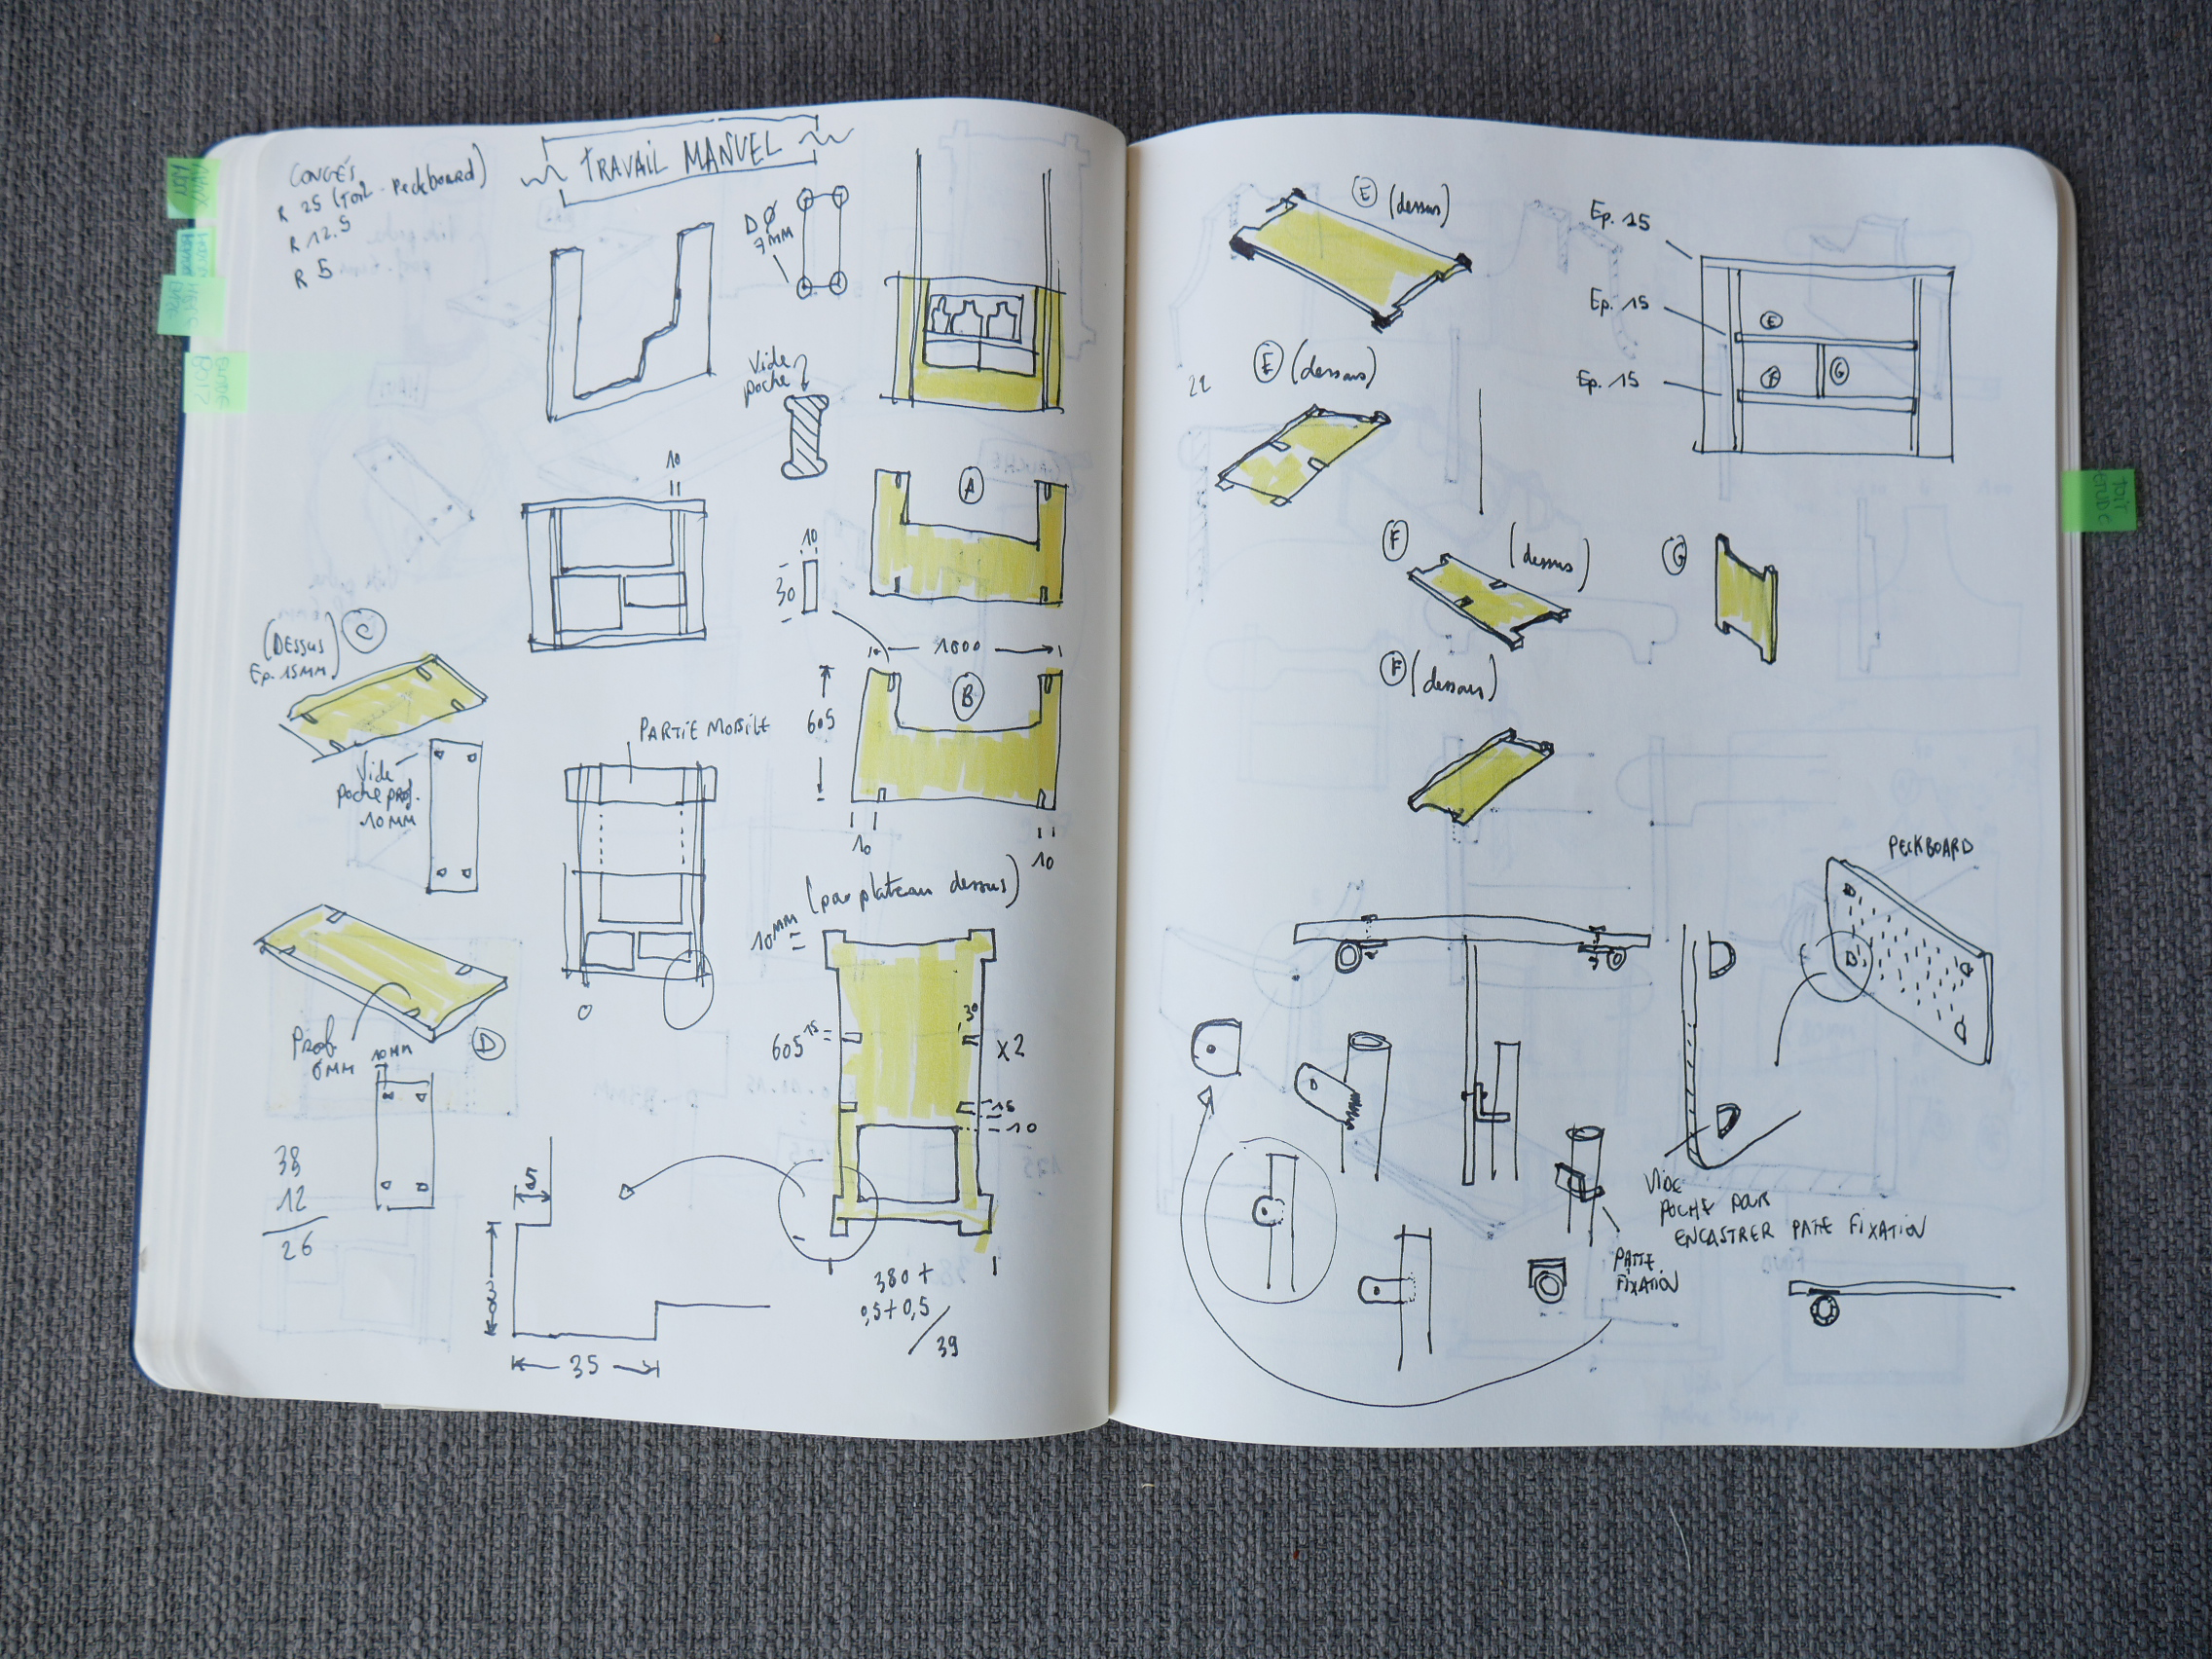 CONGÉS
R 25 (TOIT - Peckboard)
R 12.5
R 5
TRAVAIL MANUEL
D Ø
7MM
Vide
poche
10
A
10
30
(DESSUS
Ep. 15MM)
C
1000
605
B
10
10
PARTIE MOBILE
Vide
poche prof.
10MM
(par plateau dessus)
10MM
Prof.
6MM
10MM
D
30
605
15
X2
15
10
38
12
26
35
380 +
0,5 + 0,5
39
E (dessus)
Ep. 15
Ep. 15
Ep. 15
E
F
G
22
E (dessous)
F (dessus)
G
F (dessous)
PECKBOARD
VIDE
POCHE POUR
ENCASTRER PATTE FIXATION
PATTE
FIXATION
TOIT